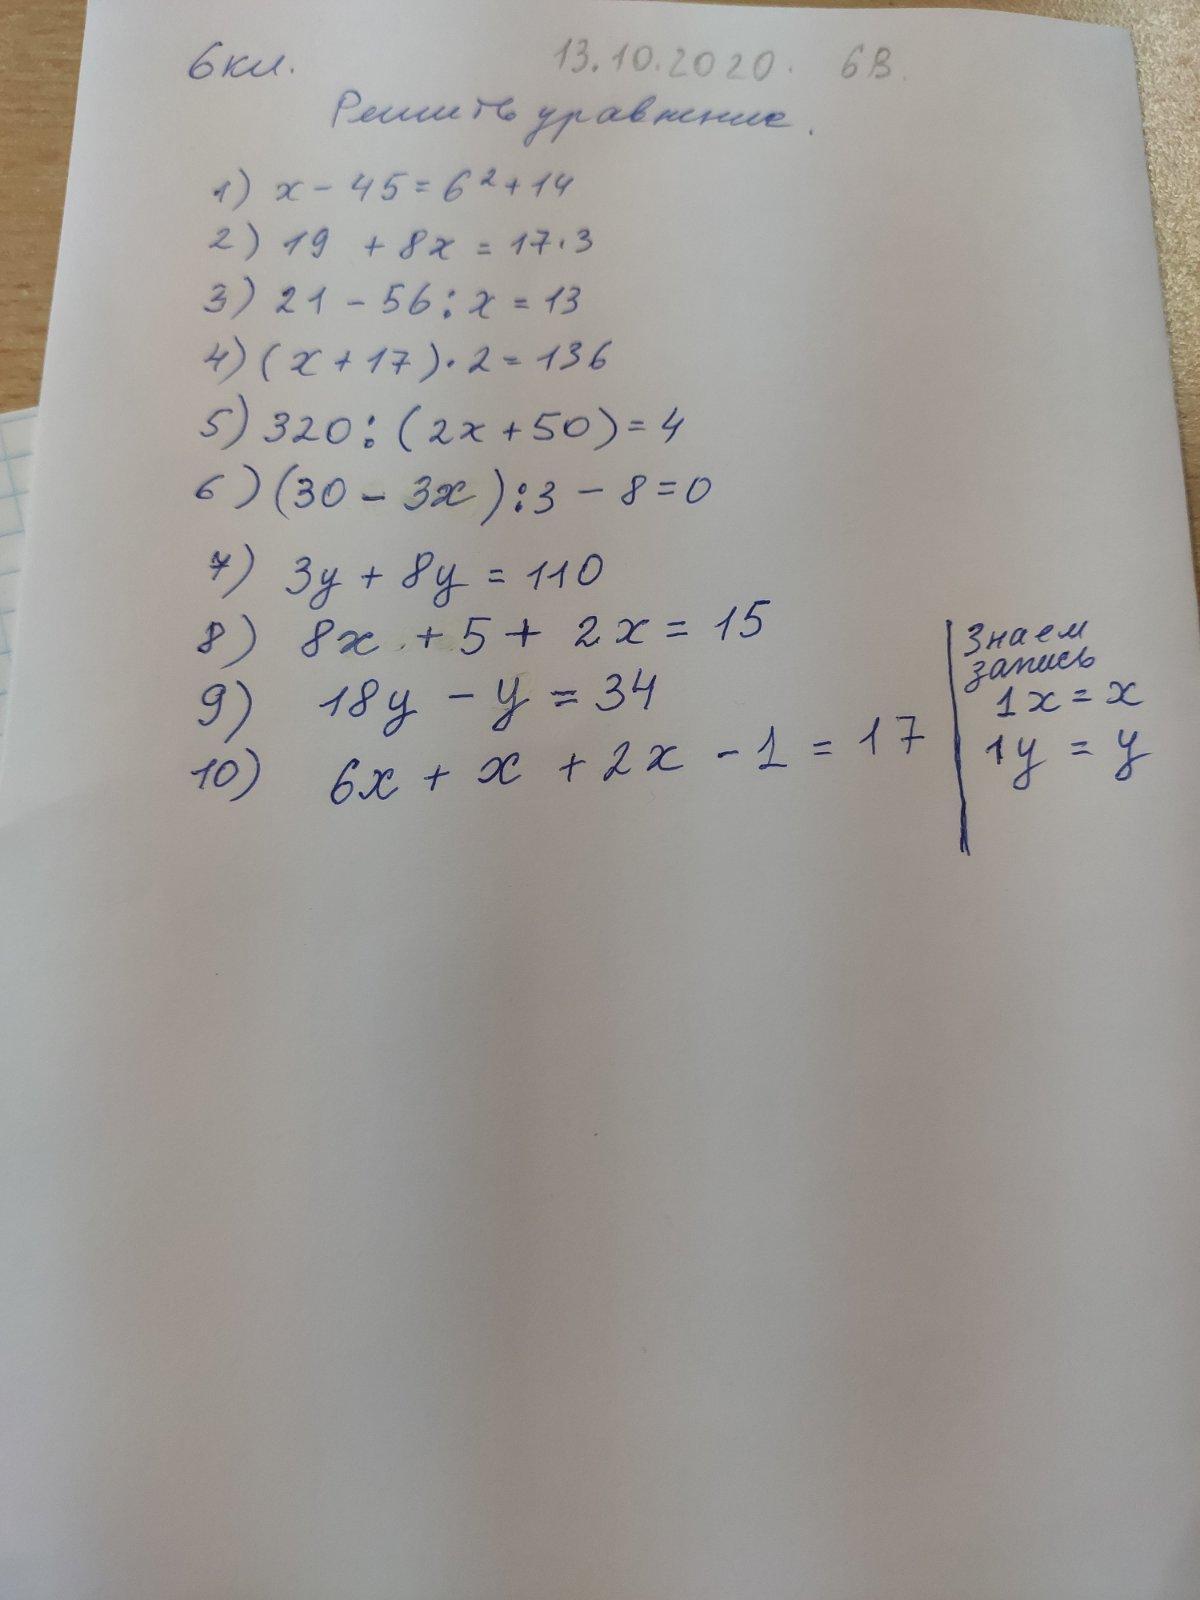 6кл. 13.10.2020. 6В.
Решить уравнение.
1) x - 45 = 6² + 14
2) 19 + 8x = 17·3
3) 21 - 56 : x = 13
4) (x + 17)·2 = 136
5) 320 : (2x + 50) = 4
6) (30 - 3x) : 3 - 8 = 0
7) 3y + 8y = 110
8) 8x + 5 + 2x = 15
9) 18y - y = 34
10) 6x + x + 2x - 1 = 17
Знаем
запись
1x = x
1y = y